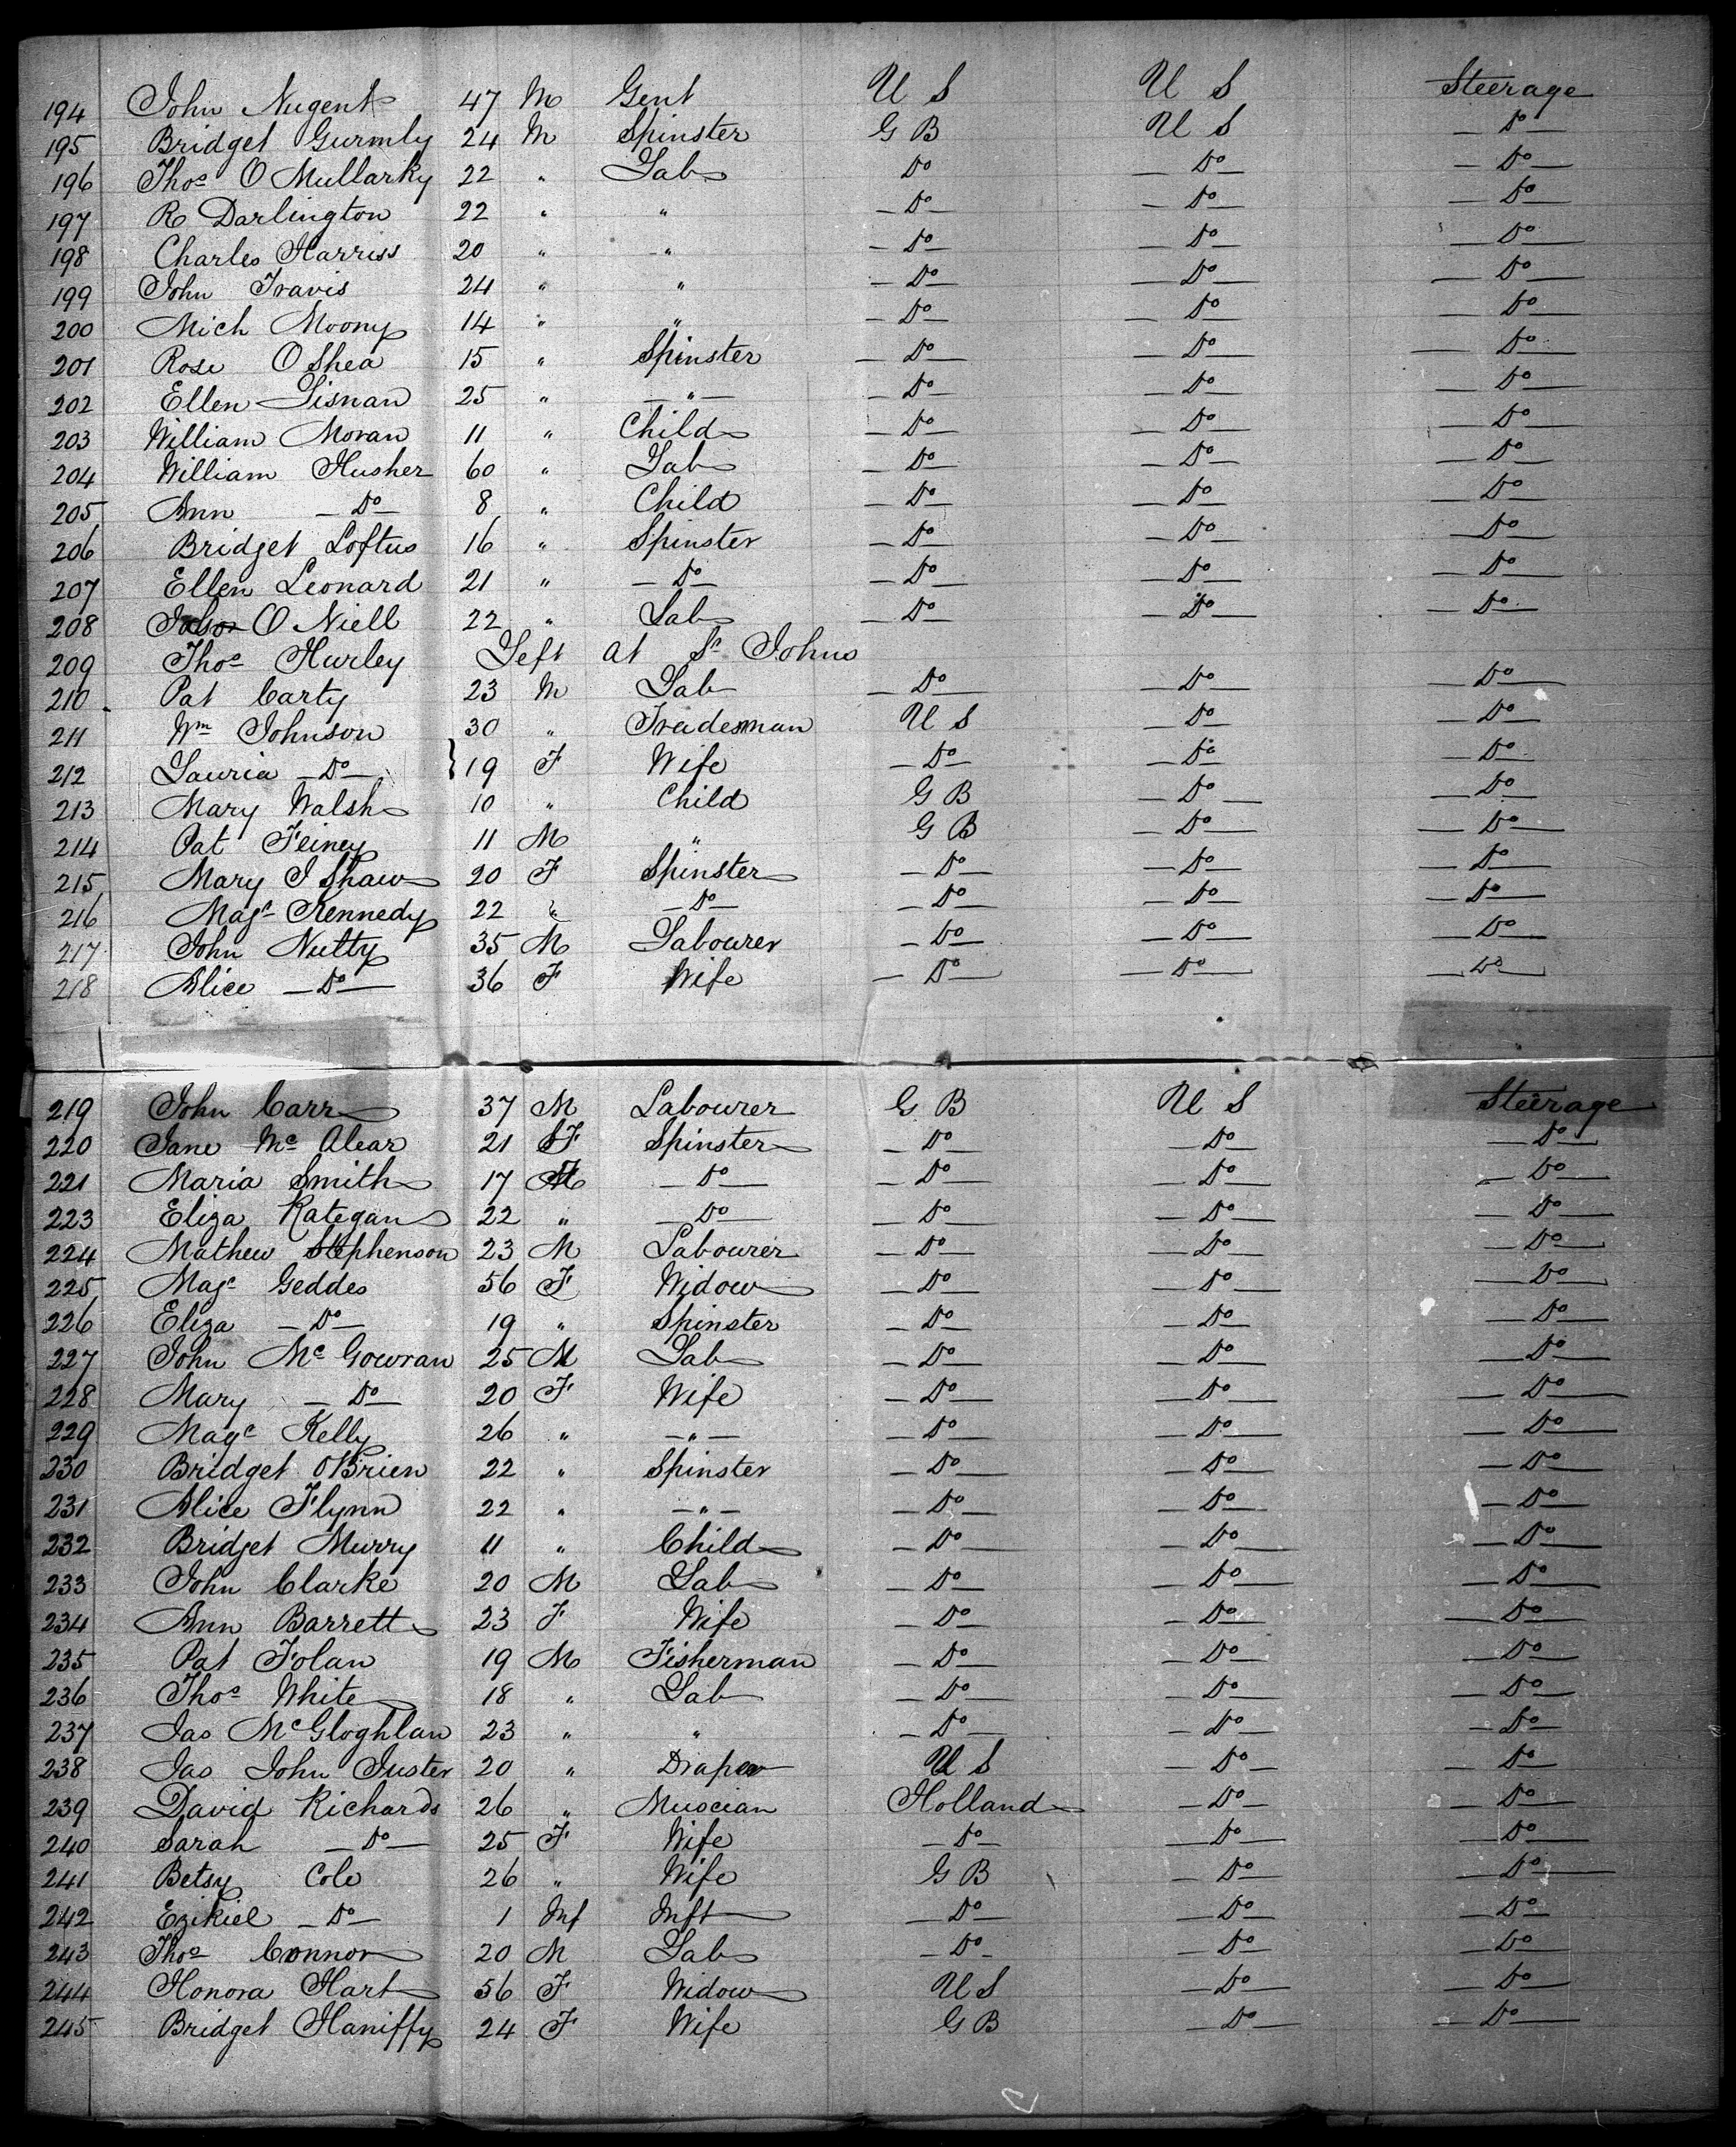 194 John Nugent 47 M Gent U S U S Steerage
195 Bridget Gurmly 24 M Spinster G B U S — Do —
196 Thos O Mullarky 22 " Lab Do — Do — — Do —
197 R Darlington 22 " " — Do — — Do — — Do —
198 Charles Harriss 20 " " — Do — — Do — — Do —
199 John Travis 24 " " — Do — — Do — — Do —
200 Mich Moony 14 " " — Do — — Do — — Do —
201 Rose O Shea 15 " Spinster — Do — — Do — — Do —
202 Ellen Lisnan 25 " — " — — Do — — Do — — Do —
203 William Moran 11 " Child — Do — — Do — — Do —
204 William Husher 60 " Lab — Do — — Do — — Do —
205 Ann — Do — 8 " Child — Do — — Do — — Do —
206 Bridget Loftus 16 " Spinster — Do — — Do — — Do —
207 Ellen Leonard 21 " — Do — — Do — — Do — — Do —
208 O Niell 22 " Lab — Do — — Do — — Do —
209 Thos Hurley Left at St Johns
210 Pat Carty 23 M Lab — Do — — Do — — Do —
211 Wm Johnson 30 " Tradesman U S — Do — — Do —
212 Lauria — Do — } 19 F Wife — Do — — Do — — Do —
213 Mary Walsh 10 " Child G B — Do — — Do —
214 Pat Feiney 11 M " G B — Do — — Do —
215 Mary J Shaw 20 F Spinster — Do — — Do — — Do —
216 Magt Kennedy 22 " — Do — — Do — — Do — — Do —
217 John Nutty 35 M Labourer — Do — — Do — — Do —
218 Alice — Do — 36 F Wife — Do — — Do — — Do —
219 John Carr 37 M Labourer G B U S Steerage
220 Jane Mc Alear 21 F Spinster — Do — — Do — — Do —
221 Maria Smith 17 F — Do — — Do — — Do — — Do —
223 Eliza Rategan 22 " — Do — — Do — — Do — — Do —
224 Mathew Stephenson 23 M Labourer — Do — — Do — — Do —
225 Magt Geddes 56 F Widow — Do — — Do — — Do —
226 Eliza — Do — 19 " Spinster — Do — — Do — — Do —
227 John Mc Gowran 25 M Lab — Do — — Do — — Do —
228 Mary — Do — 20 F Wife — Do — — Do — — Do —
229 Magt Kelly 26 " — " — — Do — — Do — — Do —
230 Bridget OBrien 22 " Spinster — Do — — Do — — Do —
231 Alice Flynn 22 " — " — — Do — — Do — — Do —
232 Bridget Murry 11 " Child — Do — — Do — — Do —
233 John Clarke 20 M Lab — Do — — Do — — Do —
234 Ann Barrett 23 F Wife — Do — — Do — — Do —
235 Pat Folan 19 M Fisherman — Do — — Do — — Do —
236 Thos White 18 " Lab — Do — — Do — — Do —
237 Jas McGloghlan 23 " " — Do — — Do — — Do —
238 Jas John Juster 20 " Draper U S — Do — — Do —
239 David Richards 26 " Muscian Holland — Do — — Do —
240 Sarah — Do — 25 F Wife — Do — — Do — — Do —
241 Betsy Cole 26 " Wife G B — Do — — Do —
242 Ezikiel — Do — 1 Inf Inft — Do — — Do — — Do —
243 Thos Connor 20 M Lab — Do — — Do — — Do —
244 Honora Hart 56 F Widow U S — Do — — Do —
245 Bridget Haniffy 24 F Wife G B — Do — — Do —